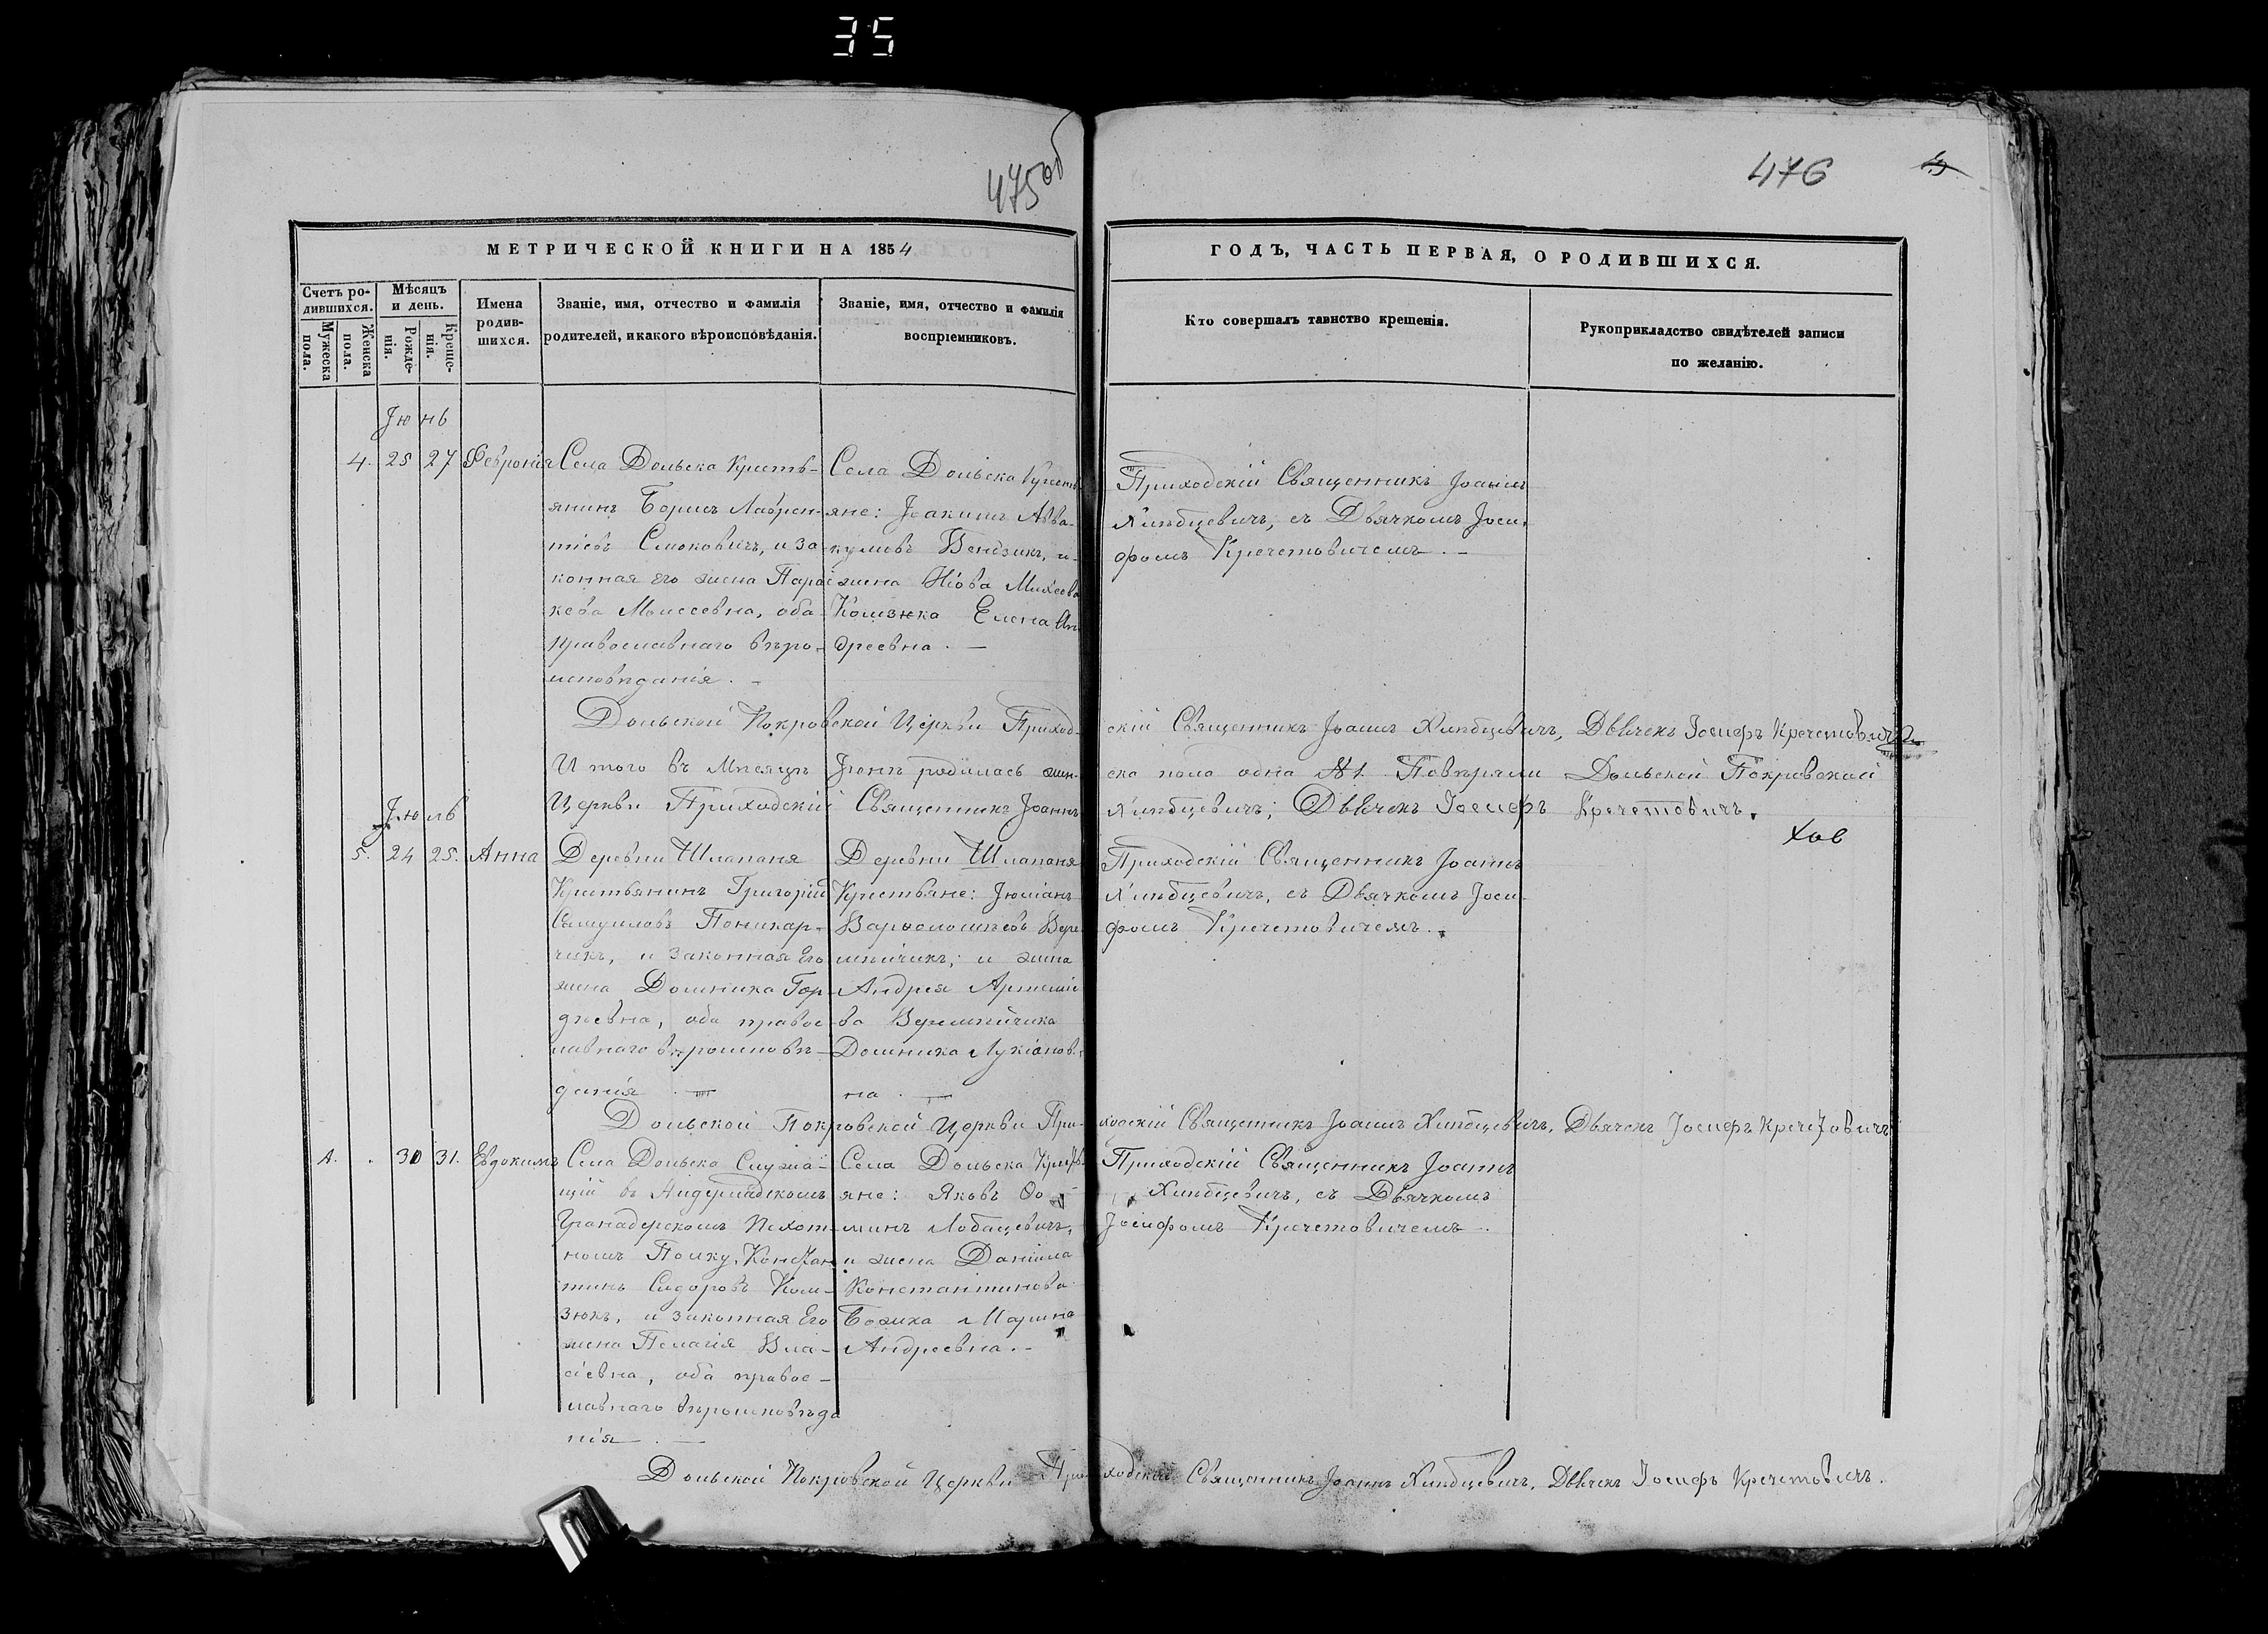 35
475об
476
МЕТРИЧЕСКОЙ КНИГИ НА 1854
ГОДЪ, ЧАСТЬ ПЕРВАЯ, О РОДИВШИХСЯ.
Счетъ ро-
дившихся.
Мужеска
пола.
Женска
пола.
Мѣсяцъ
и день.
Рожде-
нія.
Креще-
нія.
Имена
родив-
шихся.
Званіе, имя, отчество и фамилія
родителей, и какого вѣроисповѣданія.
Званіе, имя, отчество и фамилія
воспріемниковъ.
Кто совершалъ таинство крещенія.
Рукоприкладство свидѣтелей записи
по желанію.
Іюнь
4. 25 27 Февронія
Села Дольска Кресть-
янинъ Борисъ Лаврен-
тіевъ Смоковичъ, и за-
конная его жена Парас
кева Моисеевна, оба
православнаго вѣро-
исповѣданія. -
Села Дольска Кресть
яне: Іоакимъ Авва-
кумовъ Вендзикъ, и
жена Іова Михеева
Комзюка Елена Ан
дреевна. -
Приходскій Священникъ Іоаннъ
Хлѣбцевичъ, съ Дьячкомъ Іоси-
фомъ Кречетовичемъ. -
Дольской Покровской Церкви Приход-
скій Священникъ Іоаннъ Хлѣбцевичъ, Дьячекъ Іосифъ Кречетовичъ
Итого въ Мѣсяцѣ Іюнѣ родилась жен-
ска пола одна №1. Повѣряли Дольской Покровской
Церкви Приходскій Священникъ Іоаннъ
Хлѣбцевичъ, Дьячекъ Іосифъ Кречетовичъ.
Іюль
5. 24 25. Анна
Деревни Шлапаня
Крестьянинъ Григорій
Самуиловъ Поникар-
чикъ, и законная Его
жена Домника Гор-
дѣевна, оба правос-
лавнаго вѣроисповѣ-
данія. -
Деревни Шлапаня
Крестьяне: Іюліанъ
Варѳоломѣевъ Вере
мѣйчикъ, и жена
Андрея Артеміе
ва Веремѣйчика
Домника Лукіанов-
на. -
Приходскій Священникъ Іоаннъ
Хлѣбцевичъ, съ Дьячкомъ Іоси-
фомъ Кречетовичемъ.
Дольской Покровской Церкви При-
ходскій Священникъ Іоаннъ Хлѣбцевичъ, Дьячекъ Іосифъ Кречетовичъ
30 31. Евдокимъ
Села Дольска Служа-
щій въ
Гранадерскомъ Пехот-
номъ Полку, Констан
тинъ Сидоровъ Ком-
зюкъ, и законная Его
жена Пелагія Вла-
сіевна, оба правос-
лавнаго вѣроисповѣда
нія. -
Села Дольска Кресть
яне: Яковъ Ѳо-
минъ Лобацевичъ,
и жена Даніила
Константинова
Божика Марина
Андреевна. -
Приходскій Священникъ Іоаннъ
Хлѣбцевичъ, съ Дьячкомъ
Іосифомъ Кречетовичемъ.
Дольской Покровской Церкви При-
ходскій Священникъ Іоаннъ Хлѣбцевичъ, Дьячекъ Іосифъ Кречетовичъ.